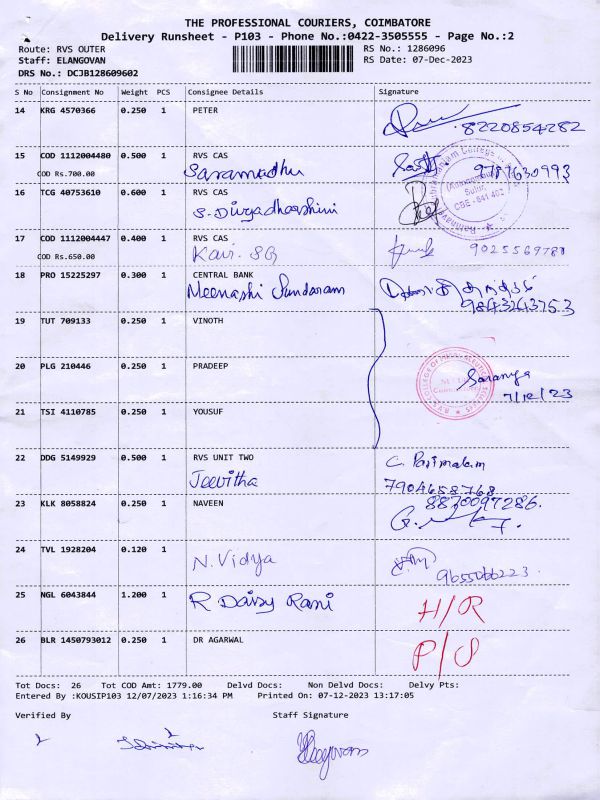 THE PROFESSIONAL COURIERS, COIMBATORE
Delivery Runsheet - P103 - Phone No.:0422-3505555 - Page No.:2
Route: RVS OUTER RS No.: 1286096
Staff: ELANGOVAN RS Date: 07-Dec-2023
DRS No.: DCJB128609602
S No Consignment No Weight PCS Consignee Details Signature
14 KRG 4570366 0.250 1 PETER
8220854282
15 COD 1112004480 0.500 1 RVS CAS
COD Rs.700.00 Saramadhu 9787630993
16 TCG 40753610 0.600 1 RVS CAS
S. Divyadharshini
17 COD 1112004447 0.400 1 RVS CAS
COD Rs.650.00 Kavi. SG 9025569788
18 PRO 15225297 0.300 1 CENTRAL BANK
Meenashi Sundaram
9843243753
19 TUT 709133 0.250 1 VINOTH
20 PLG 210446 0.250 1 PRADEEP
Saranya
7/12/23
21 TSI 4110785 0.250 1 YOUSUF
22 DDG 5149929 0.500 1 RVS UNIT TWO C. Parimalam
Jeevitha 7904658768
23 KLK 8058824 0.250 1 NAVEEN 8870097286.
24 TVL 1928204 0.120 1
N. Vidya 9655066223
25 NGL 6043844 1.200 1 R Daisy Rani H/R
26 BLR 1450793012 0.250 1 DR AGARWAL P/S
Tot Docs: 26 Tot COD Amt: 1779.00 Delvd Docs: Non Delvd Docs: Delvy Pts:
Entered By :KOUSIP103 12/07/2023 1:16:34 PM Printed On: 07-12-2023 13:17:05
Verified By Staff Signature